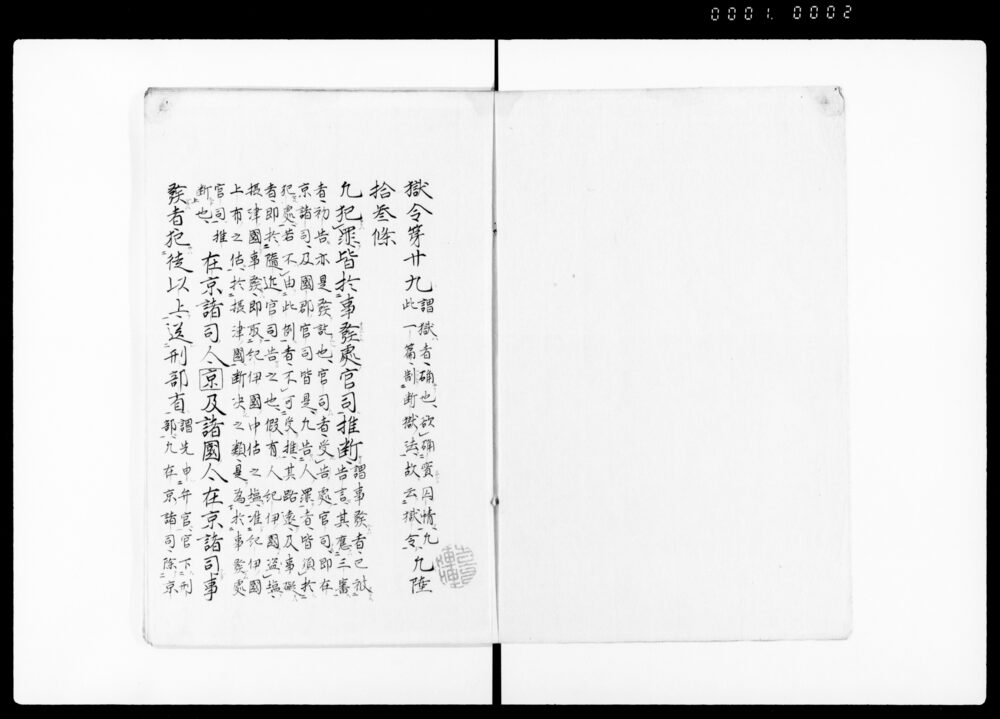 0001. 0002
獄令第廿九 謂獄者、确也、欲确實囚情、凡此一篇、制断獄法、故云獄令、 凡陸
拾叁條
凡犯罪、皆於事發處官司推断、謂事發者、已被告言、其應三審
者、初告亦是發訖也、官司者、受告處官司、即在
京諸司、及國郡官司皆是、凡告人罪者、皆須於
犯處、若不由此例者、不可受推、其路遠、及事礙
者、即於隨近官司告之也、假有人紀伊國盗塩、
摂津國事發、即取紀伊國中估之塩、准紀伊國
上布之估、於摂津國断决之類、是為於事發處
官司推断也、 在京諸司人、京及諸國人、在京諸司事
發者、犯徒以上、送刑部省、謂先申弁官、官下刑部、凡在京諸司、除京